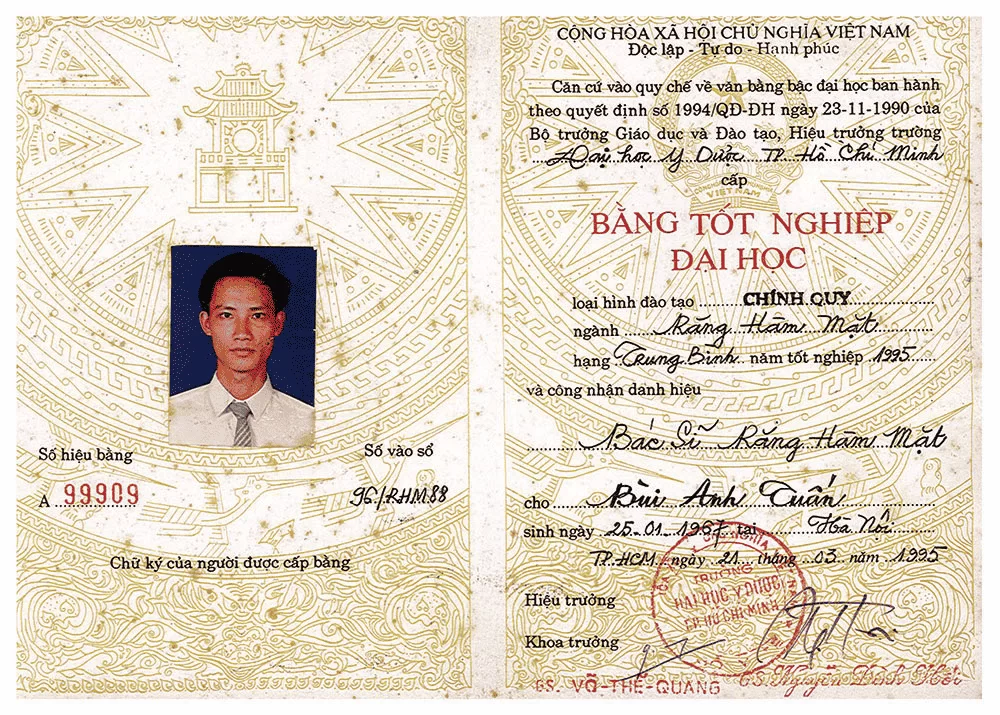 Số hiệu bằng
Số vào sổ
A 99909
96/RHM.88
Chữ ký của người được cấp bằng
CỘNG HÒA XÃ HỘI CHỦ NGHĨA VIỆT NAM
Độc lập - Tự do - Hạnh phúc
Căn cứ vào quy chế về văn bằng bậc đại học ban hành
theo quyết định số 1994/QĐ-ĐH ngày 23-11-1990 của
Bộ trưởng Giáo dục và Đào tạo, Hiệu trưởng trường
Đại học Y Dược TP Hồ Chí Minh
cấp
VIỆT NAM
BẰNG TỐT NGHIỆP
ĐẠI HỌC
loại hình đào tạo CHÍNH QUY
ngành Răng Hàm Mặt
hạng Trung Bình năm tốt nghiệp 1995
và công nhận danh hiệu
Bác Sĩ Răng Hàm Mặt
cho Bùi Anh Tuấn
sinh ngày 25-01-1967 tại Hà Nội
TP.HCM ngày 21 tháng 03 năm 1995
TRƯỜNG
ĐẠI HỌC Y DƯỢC
TP HỒ CHÍ MINH
Hiệu trưởng
Khoa trưởng
GS. VÕ-THẾ-QUANG
GS Nguyễn Đình Hối